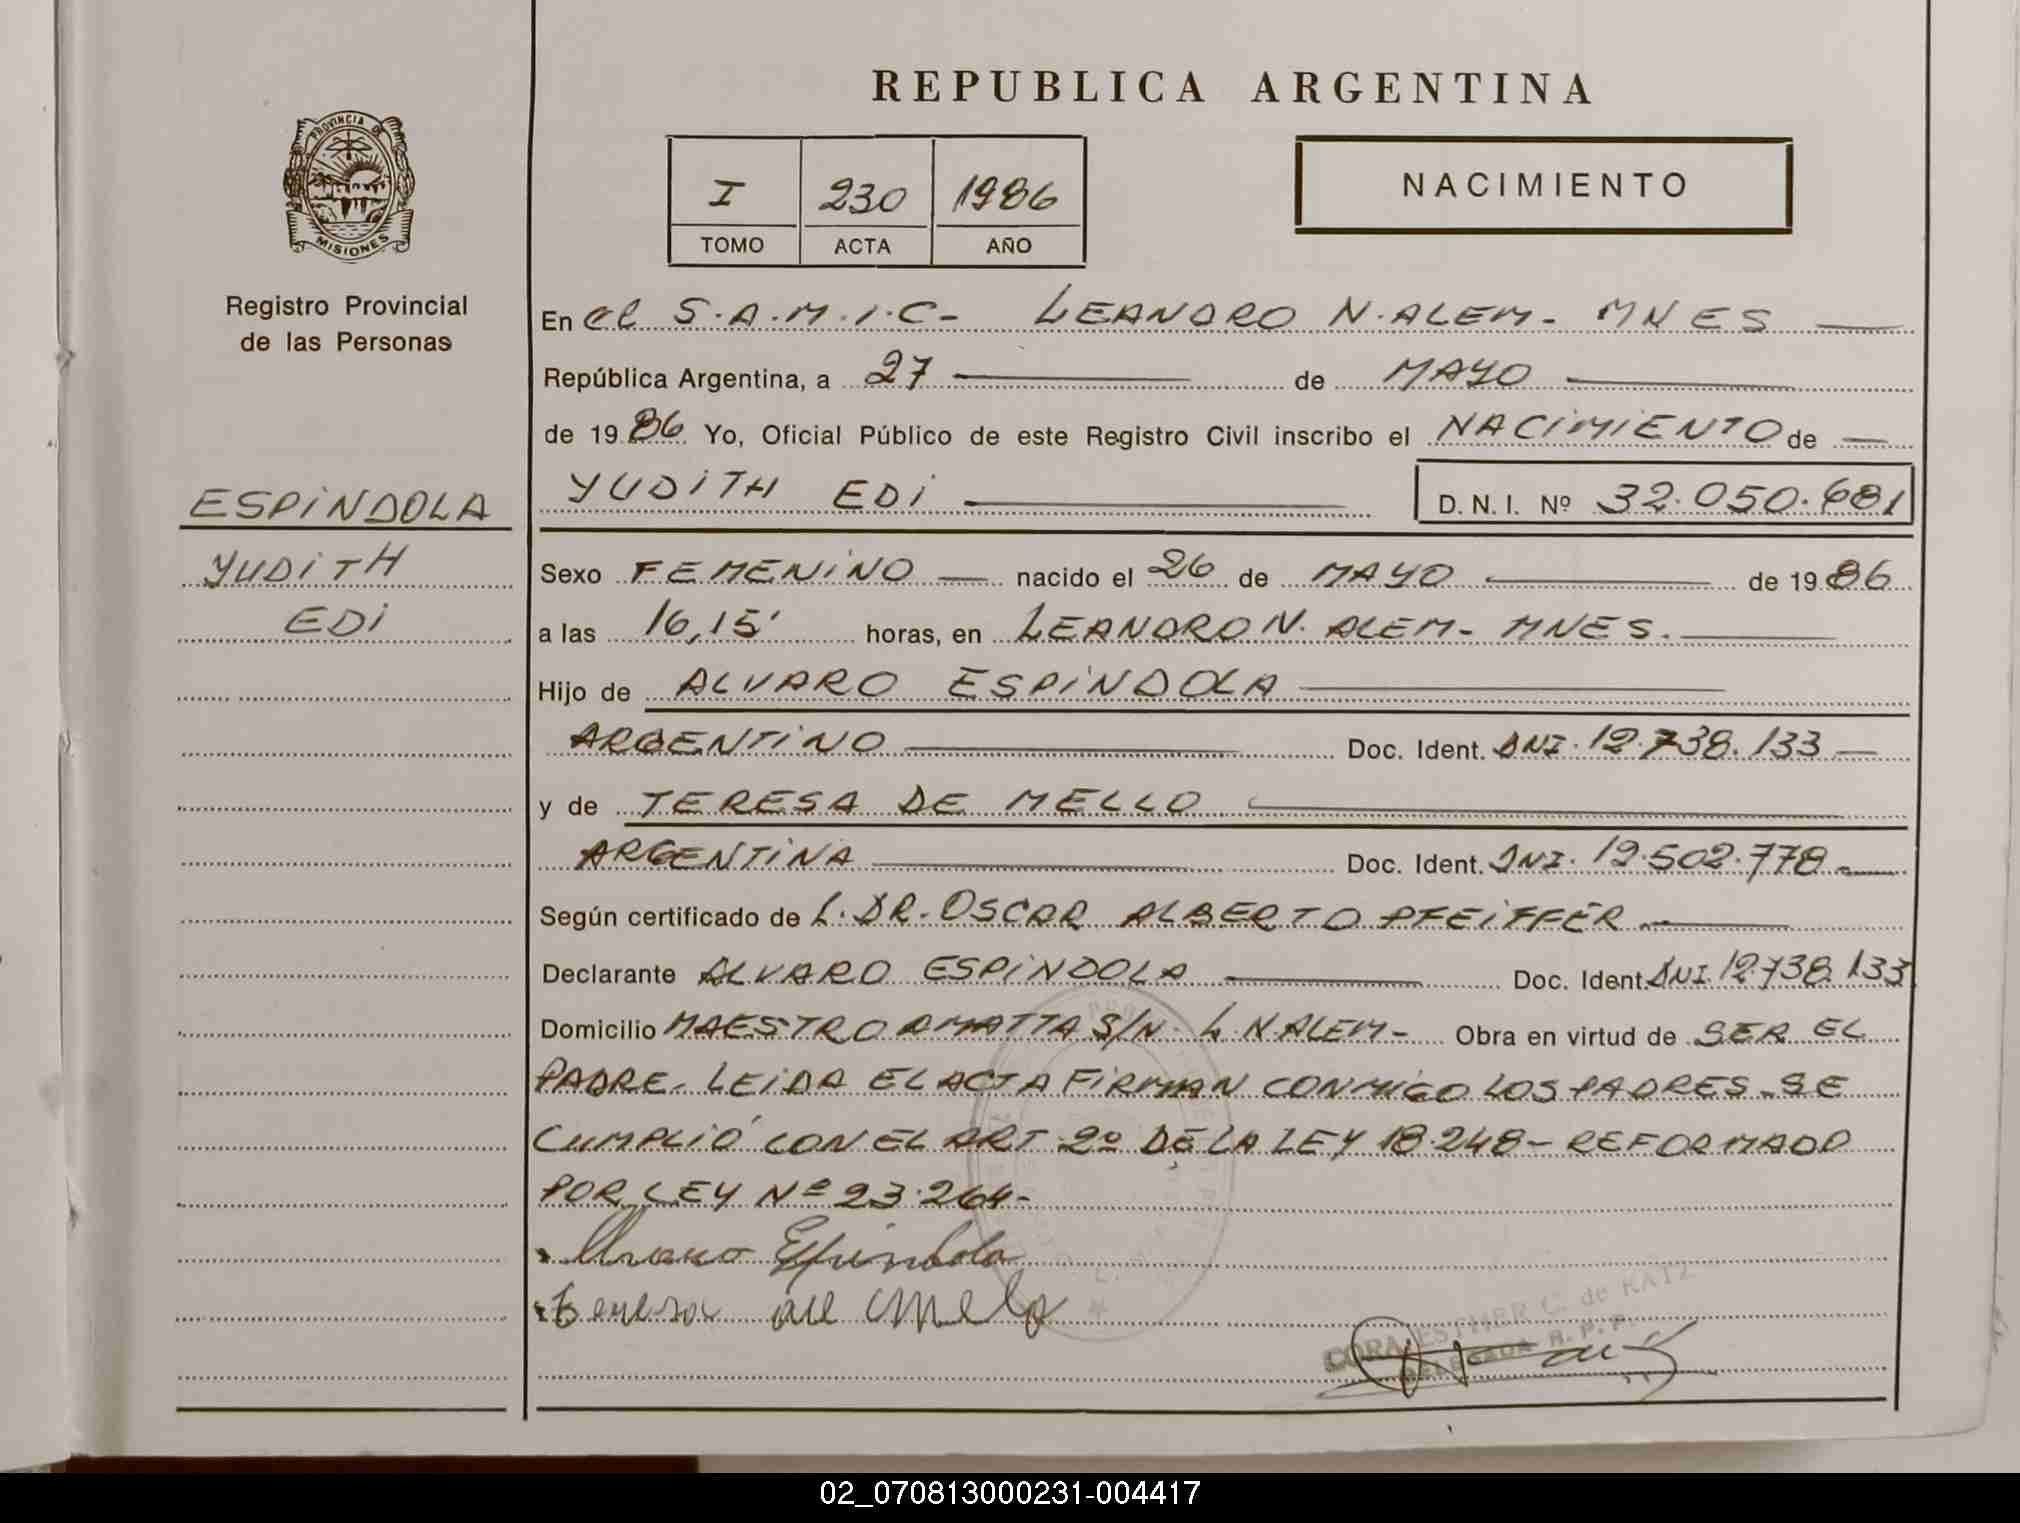 REPUBLICA ARGENTINA
PROVINCIA DE
MISIONES
Registro Provincial
de las Personas
I 230 1986
TOMO ACTA AÑO
NACIMIENTO
En el S.A.M.I.C- LEANDRO N. ALEM- MNES
República Argentina, a 27 de MAYO
de 1986 Yo, Oficial Público de este Registro Civil inscribo el NACIMIENTO de
ESPINDOLA
YUDITH
EDI
YUDITH EDI D.N.I. Nº 32.050.681
Sexo FEMENINO nacido el 26 de MAYO de 1986
a las 16,15' horas, en LEANDRO N. ALEM- MNES.
Hijo de ALVARO ESPINDOLA
ARGENTINO Doc. Ident. DNI. 12.738.133
y de TERESA DE MELLO
ARGENTINA Doc. Ident. DNI. 12.502.778
Según certificado de L. DR. OSCAR ALBERTO PFEIFFER
Declarante ALVARO ESPINDOLA Doc. Ident. DNI. 12.738.133
Domicilio MAESTRO AMATTA S/N. L.N ALEM- Obra en virtud de SER EL
PADRE. LEIDA EL ACTA FIRMAN CONMIGO LOS PADRES-SE
CUMPLIÓ CON EL ART. 2º DE LA LEY 18.248- REFORMADO
POR LEY Nº 23.264-
Alvaro Espindola
Teresa de Melo
CORA ESTHER C. de KATZ
DELEGADA R.P.P.
02_070813000231-004417